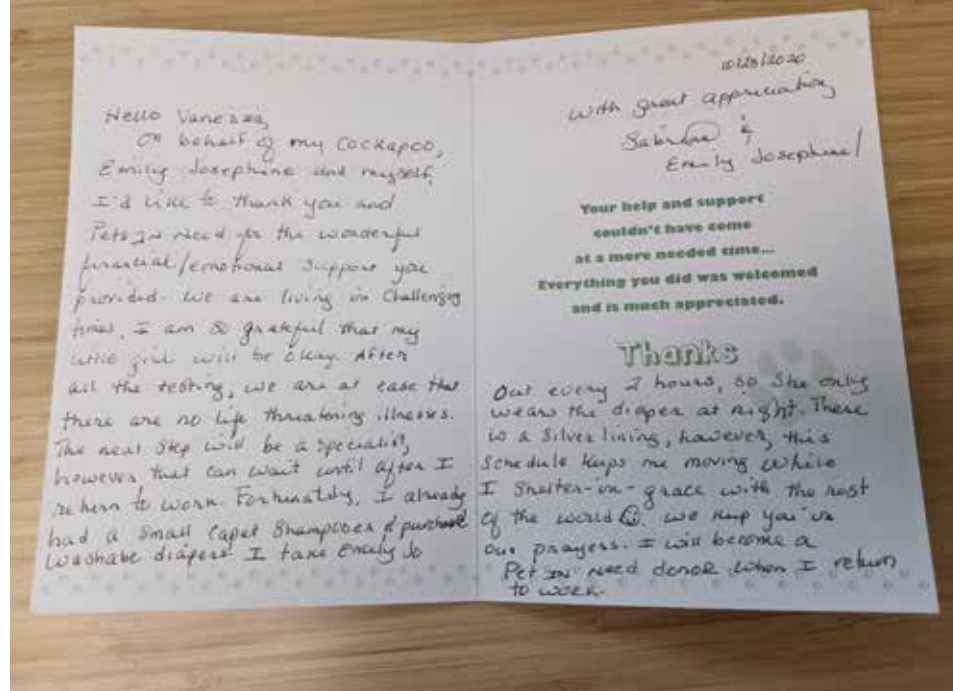 Hello Vanessa,
On behalf of my Cockapoo,
Emily Josephine and myself,
I'd like to thank you and
Pets IN Need for the wonderful
financial/emotional support you
provided. We are living in Challenging
times, I am so grateful that my
little girl will be okay. After
all the testing, we are at ease that
there are no life threatening illnesses.
The next step will be a specialist,
however, that can wait until after I
return to work. Fortunately, I already
had a small Capet Shampooer & purchased
washabe diapers. I take Emily Jo
10/28/2020
with great appreciation
Sabrina &
Emily Josephine!
Your help and support
couldn't have come
at a more needed time...
Everything you did was welcomed
and is much appreciated.
Thanks
Out every 2 hours, so She only
wears the diaper at night. There
is a Silver lining, however, this
Schedule keeps me moving while
I Shelter-in-grace with the rest
of the world ☺. We keep you in
our prayers. I will become a
Pet IN Need donor when I return
to work.